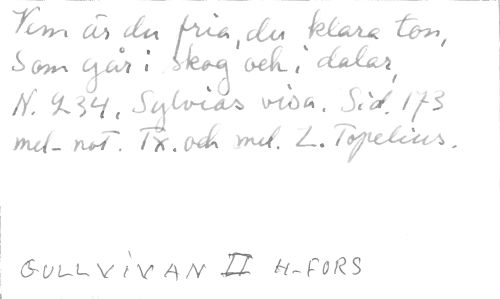 Vem är du fria, du klara ton,
Som går i skog och i dalar,
N. 234. Sylvias visa. Sid. 173
mel-not. Tx. och mel. Z. Topelius.
GULLVIVAN II H-FORS